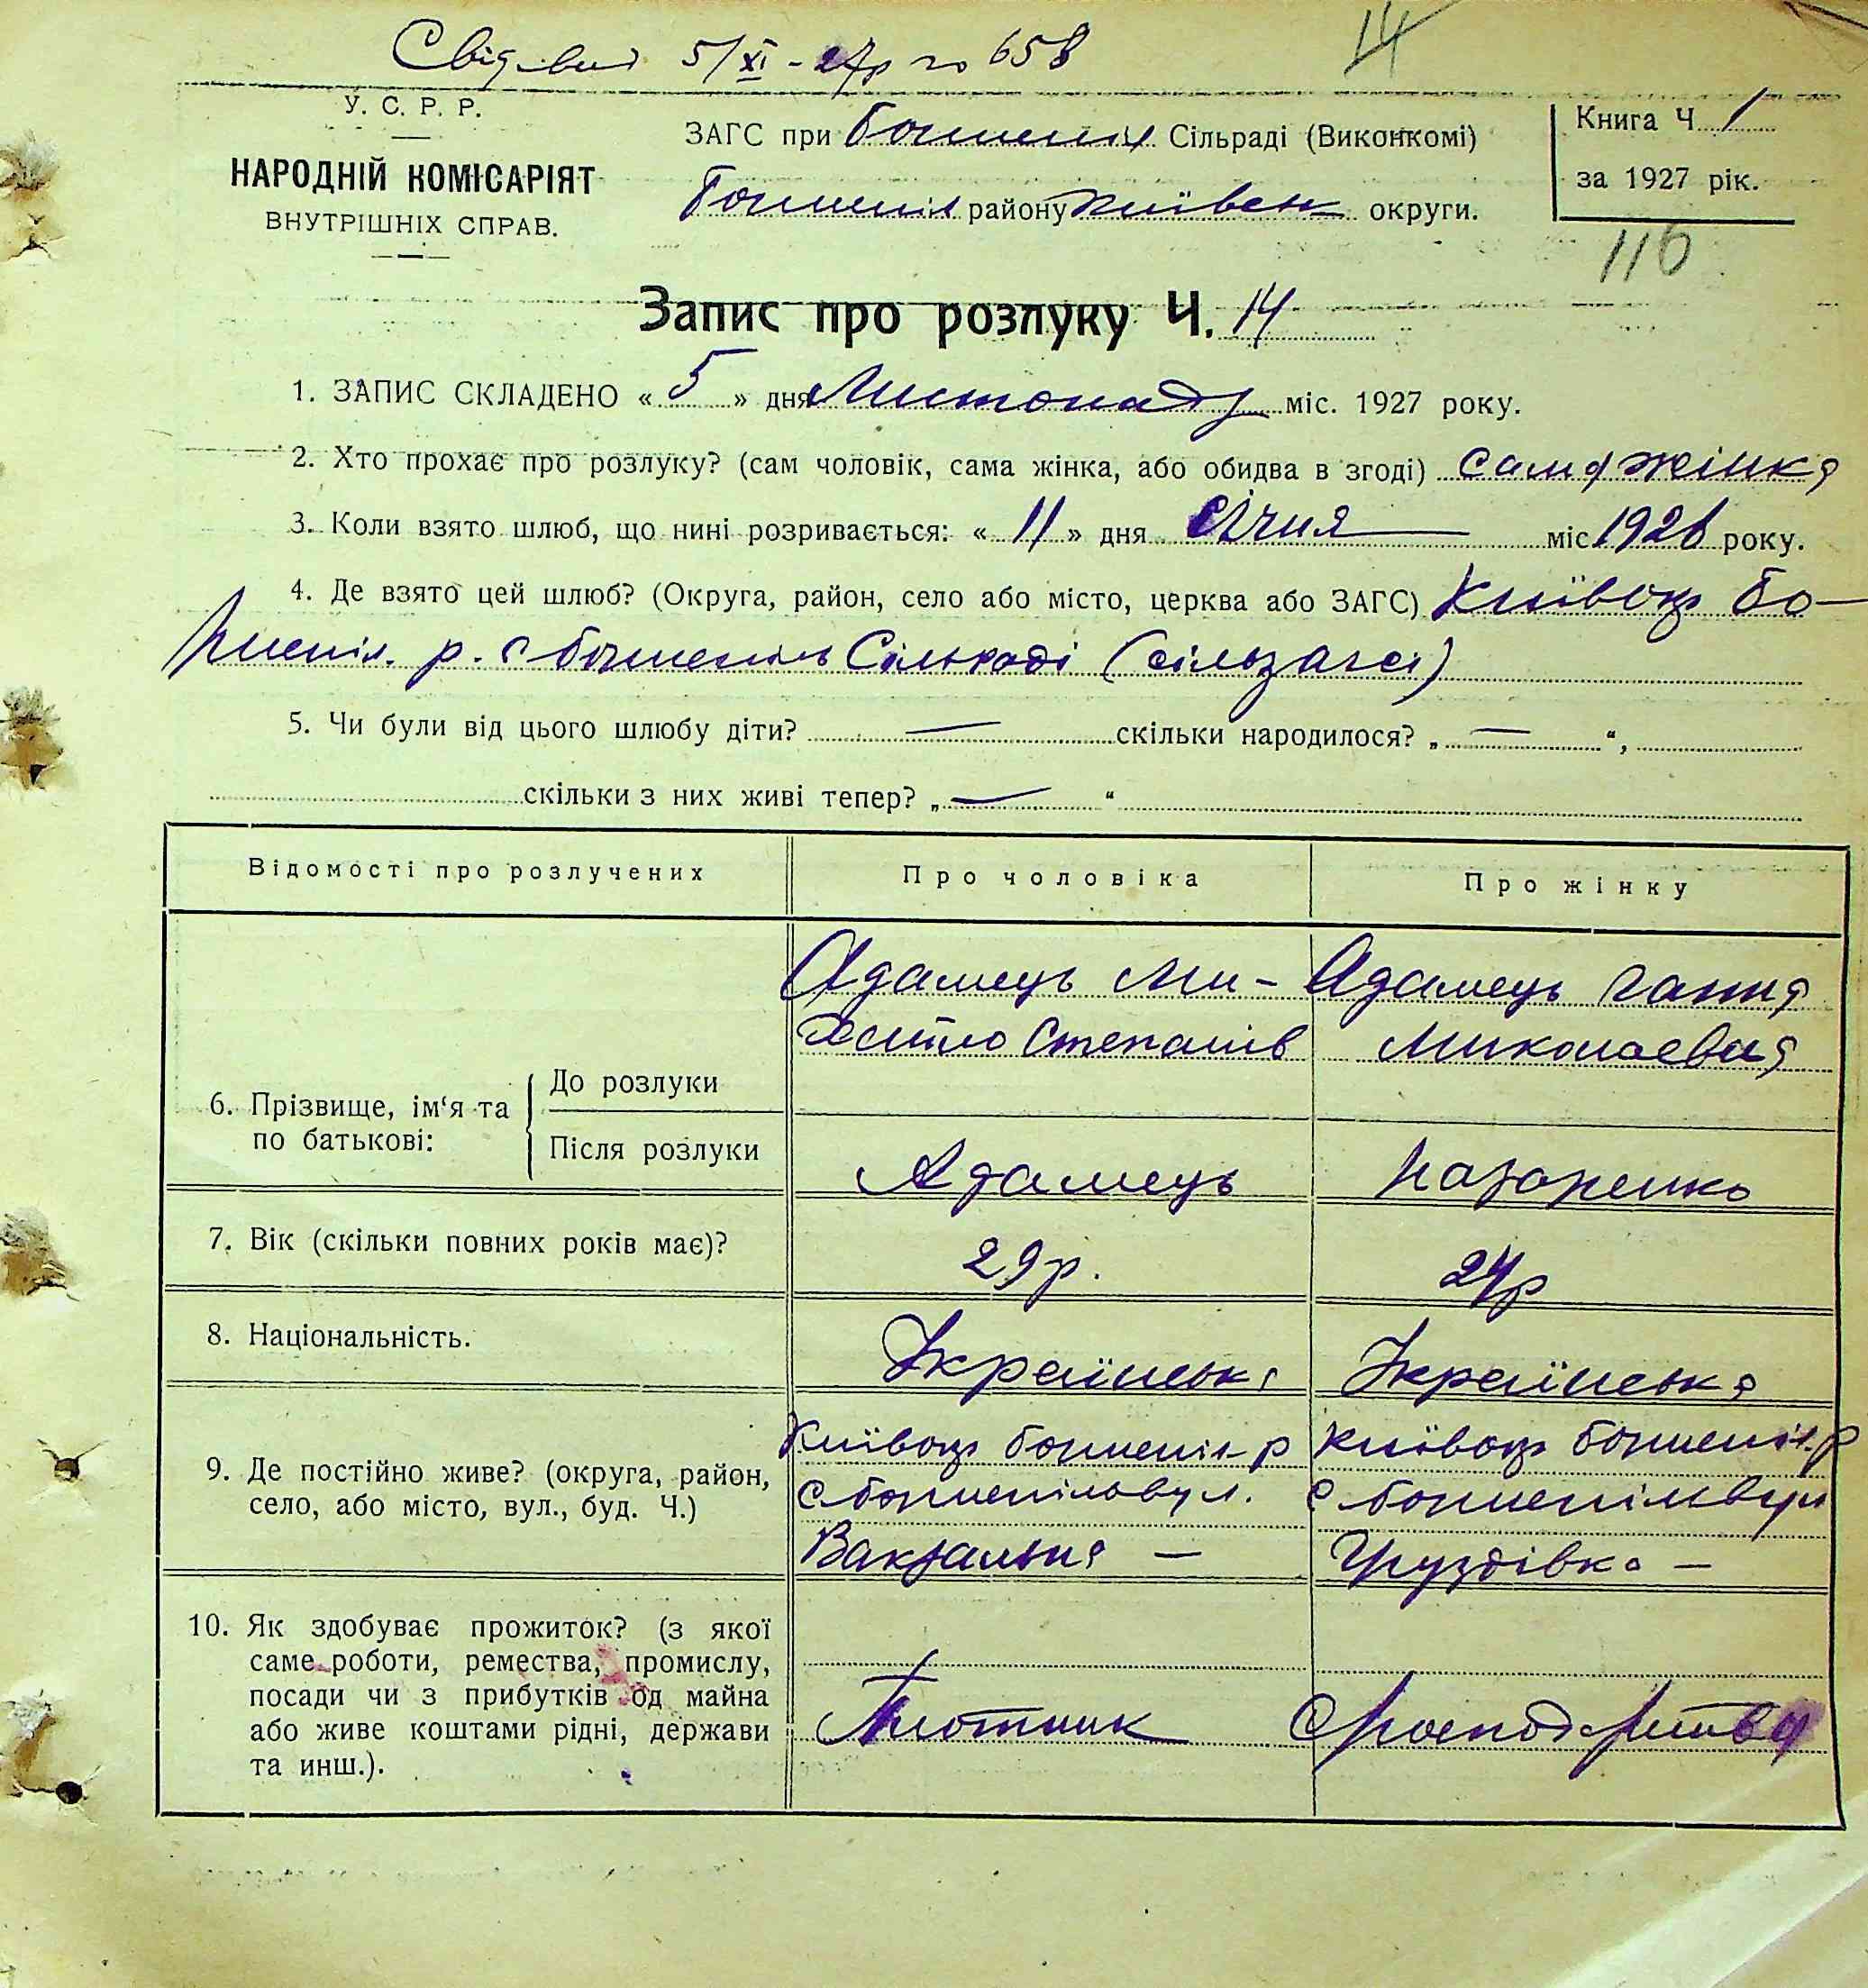 5/XI - 27р № 658
14
У. С. Р. Р.
НАРОДНІЙ КОМІСАРІЯТ
ВНУТРІШНІХ СПРАВ.
ЗАГС при Сільраді (Виконкомі)
району Київськ округи.
Книга Ч 1
за 1927 рік.
116
Запис про розлуку Ч. 14
1. ЗАПИС СКЛАДЕНО « 5 » дня Листопада міс. 1927 року.
2. Хто прохає про розлуку? (сам чоловік, сама жінка, або обидва в згоді) сама жінка
3. Коли взято шлюб, що нині розривається: « 11 » дня січня міс 1926 року.
4. Де взято цей шлюб? (Округа, район, село або місто, церква або ЗАГС) Київокр Бо-
риспіл. р. с Бориспіль Сільраді (сільзагсі)
5. Чи були від цього шлюбу діти? — скільки народилося? „ — “,
скільки з них живі тепер? „ — “
Відомості про розлучених Про чоловіка Про жінку
6. Прізвище, ім‘я та по батькові:
До розлуки
Адамець Ми-
хайло Степанів
Адамець Ганна
Миколаєвна
Після розлуки
Адамець
Назаренко
7. Вік (скільки повних років має)?
29р.
24р
8. Національність.
Українська
Українська
9. Де постійно живе? (округа, район,
село, або місто, вул., буд. Ч.)
Київокр Бориспіл-р
с Бориспіль вул.
Вакзальна —
Київокр Бориспіл-р
с Бориспіль вул
Груздівка —
10. Як здобуває прожиток? (з якої
саме роботи, ремества, промислу,
посади чи з прибутків од майна
або живе коштами рідні, держави
та инш.).
Плотник